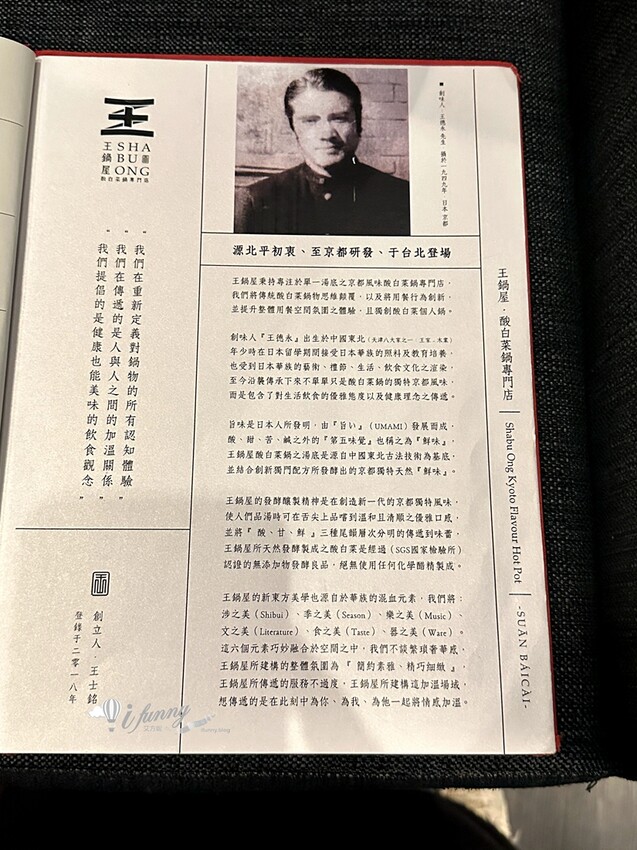 王
王鍋屋
SHA
BU
ONG
酸白菜鍋專門店
創味人．王德永先生 攝於一九四九年．日本京都
源北平初衷、至京都研發、于台北登場
王鍋屋秉持專注於單一湯底之京都風味酸白菜鍋專門店，
我們將傳統酸白菜鍋物思維顛覆，以及將用餐行為創新，
並提升整體用餐空間氛圍之體驗，且獨創酸白菜個人鍋。
創味人『王德永』出生於中國東北（天津八大家之一．王家．木業）
年少時在日本留學期間接受日本華族的照料及教育培養，
也受到日本華族的藝術、禮節、生活、飲食文化之渲染，
至今沿襲傳承下來不單單只是酸白菜鍋的獨特京都風味，
而是包含了對生活飲食的優雅態度以及健康理念之傳遞。
旨味是日本人所發明，由『旨い』（UMAMI）發展而成，
酸、甜、苦、鹹之外的『第五味覺』也稱之為『鮮味』，
王鍋屋酸白菜鍋之湯底是源自中國東北古法技術為基底，
並結合創新獨門配方所發酵出的京都獨特天然『鮮味』。
王鍋屋的發酵釀製精神是在創造新一代的京都獨特風味，
使人們品湯時可在舌尖上品嚐到溫和且清順之優雅口感，
並將『酸、甘、鮮』三種尾韻層次分明的傳遞到味蕾，
王鍋屋所天然發酵製成之酸白菜是經過（SGS國家檢驗所）
認證的無添加物發酵良品，絕無使用任何化學醋精製成。
王鍋屋的新東方美學也源自於華族的混血元素，我們將：
涉之美（Shibui）、季之美（Season）、樂之美（Music）、
文之美（Literature）、食之美（Taste）、器之美（Ware）。
這六個元素巧妙融合於空間之中，我們不談繁瑣奢華感，
王鍋屋所建構的整體氛圍為『簡約素雅、精巧細緻』，
王鍋屋所傳遞的服務不過度，王鍋屋所建構這加溫場域，
想傳遞的是在此刻中為你、為我、為他一起將情感加溫。
"我們在重新定義對鍋物的所有認知體驗"
"我們在傳遞的是人與人之間的加溫關係"
"我們提倡的是健康也能美味的飲食觀念"
創立人．王士銘
登錄于二零一八年
王鍋屋．酸白菜鍋專門店
Shabu Ong Kyoto Flavour Hot Pot
-SUĀN BÁICÀI-
i funny
艾方妮